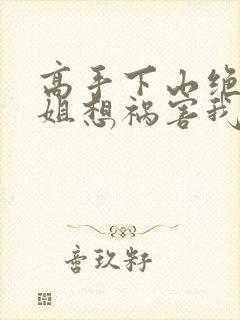 高手下山绝
姐想祸害我
音玖籽